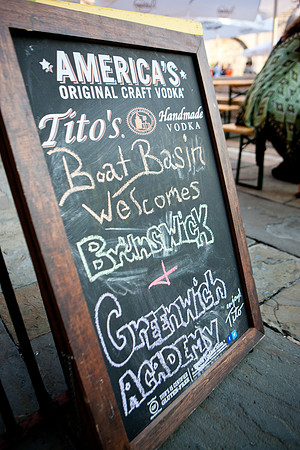 AMERICA'S
ORIGINAL CRAFT VODKA
Tito's. Handmade
VODKA
Boat Basin
Welcomes
BRUNSWICK
+
Greenwich
ACADEMY